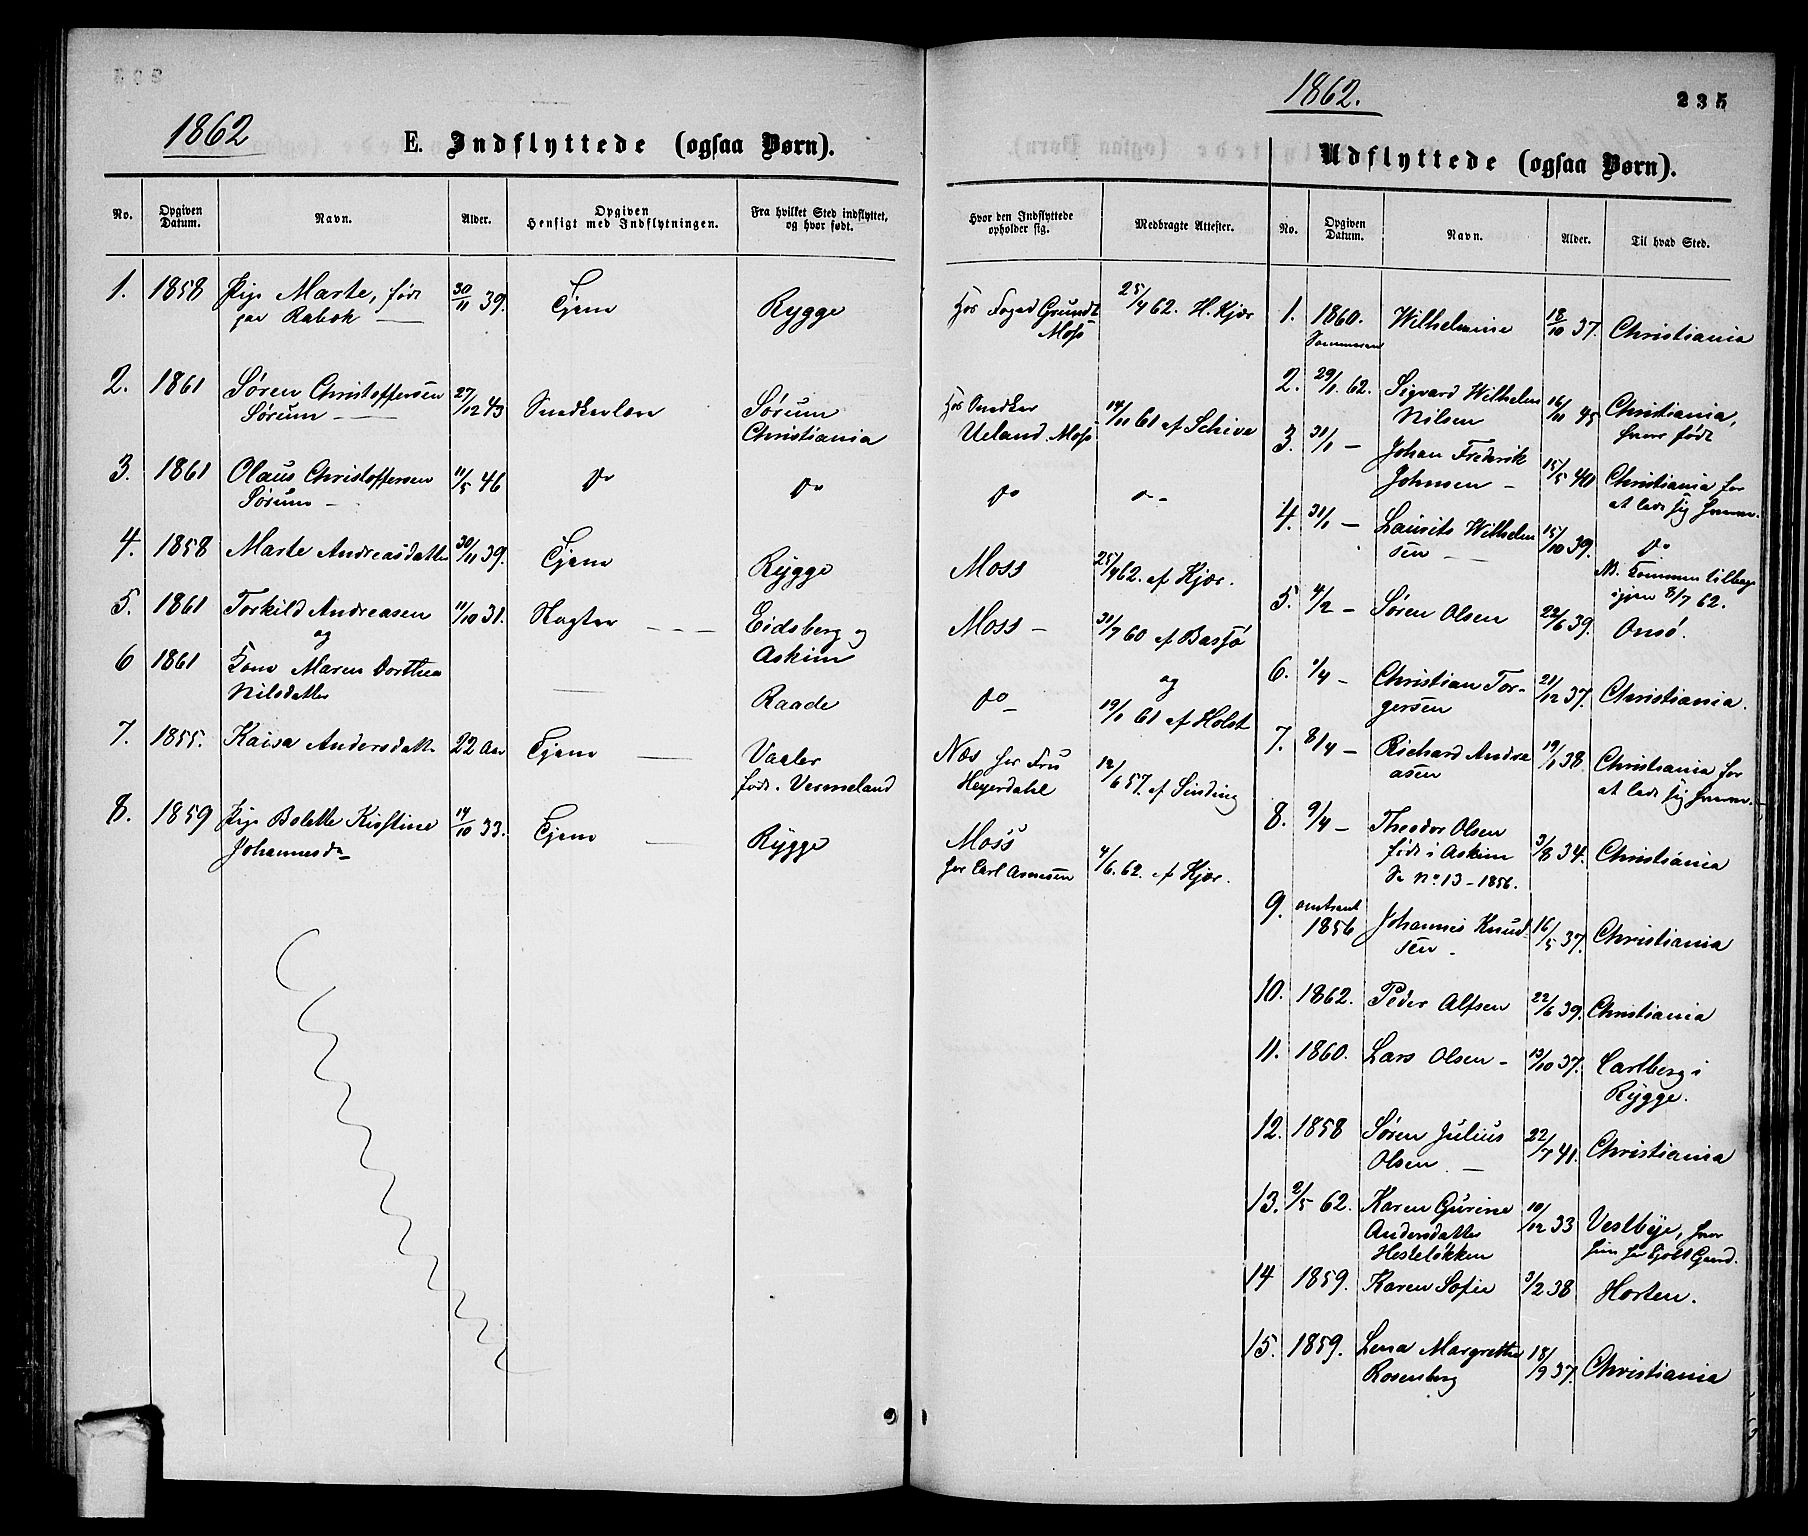 1862
E. Indflyttede (ogsaa Børn).
No. Opgiven Datum. Navn. Alder. Opgiven Hensigt med Indflytningen. Fra hvilket Sted indflyttet, og hvor født.
1. 1858 Pige Marte, født 30/11 39. Tjene Rygge
paa Rabek
2. 1861 Søren Christoffersen 27/12 43 Snedkerlære Sørum
Sørum Christiania
3. 1861 Olaus Christoffersen 11/5 46 do do
Sørum
4. 1858 Marte Andreasdatter 30/11 39. Tjene Rygge
5. 1861 Torkild Andreasen 11/10 31. Eidsberg og
og Askim
6 1861 Kone Maren Dorthea
Nilsdatter Raade
7. 1855. Kaisa Andersdatt 22 Aar Tjene Vaaler
født i Vermeland
8. 1859 Pige Bolette Kirstine 14/10 33. Tjene Rygge
Johannesd
1862.
235
Hvor den Indflyttede opholder sig. Medbragte Attester.
Hos Foged Grundt 25/4 62. H. Kjær
Moss
Hos Snedker
Ueland Moss 14/11 61 af Schive
do do
Moss 25/4 62. af Kjær.
Moss 31/7 60 af Bassø
og
do 19/1 61 af Holst
Næs hos Fru 12/6 57. af Sinding
Heyerdahl
Moss
hos Carl Arnesen 4/6. 62. af Kjær.
Udflyttede (ogsaa Børn).
No. Opgiven Datum. Navn. Alder. Til hvad Sted.
1. 1860. Wilhelmine 18/10 37. Christiania
Sommeren
2. 29/1. 62. Sigvard Wilhelm 16/11 45 Christiania,
Nilsen hvor født
3. 31/1 - Johan Frederik
Johnsen 15/5 40 Christiania for
at lade sig
4. 31/1 - Laurits Wilhelm
sen 15/10 39. do
NB. Kommen tilbage
igjen 8/7 62.
5. 4/2 - Søren Olsen 22/6 39. Onsø.
6. 1/4 - Christian Tor-
gersen 21/12 37. Christiania.
7. 8/4 - Richard Andre
asen 19/1 38. Christiania for
at lade sig
8. 9/4 - Theodor Olsen
født i Askim 3/8 34. Christiania
Se No 13 - 1856.
9. omtrent
1856 Johannes Knud-
sen 16/5 37. Christiania
10. 1862. Peder Alfsen 22/6 39. Christiania
11. 1860. Lars Olsen 13/10 37. Carlberg i
Rygge.
12. 1858 Søren Julius 22/7 41. Christiania
Olsen
13. 2/5 62. Karen Gurine 10/12 33 Vestbye, hvor
Andersdatter hun har kjøbt Gaard.
Hesteløkken
14 1859. Karen Sofie 3/2 38 Horten.
15. 1859. Lena Margrethe 18/9 37. Christiania
Rosenberg